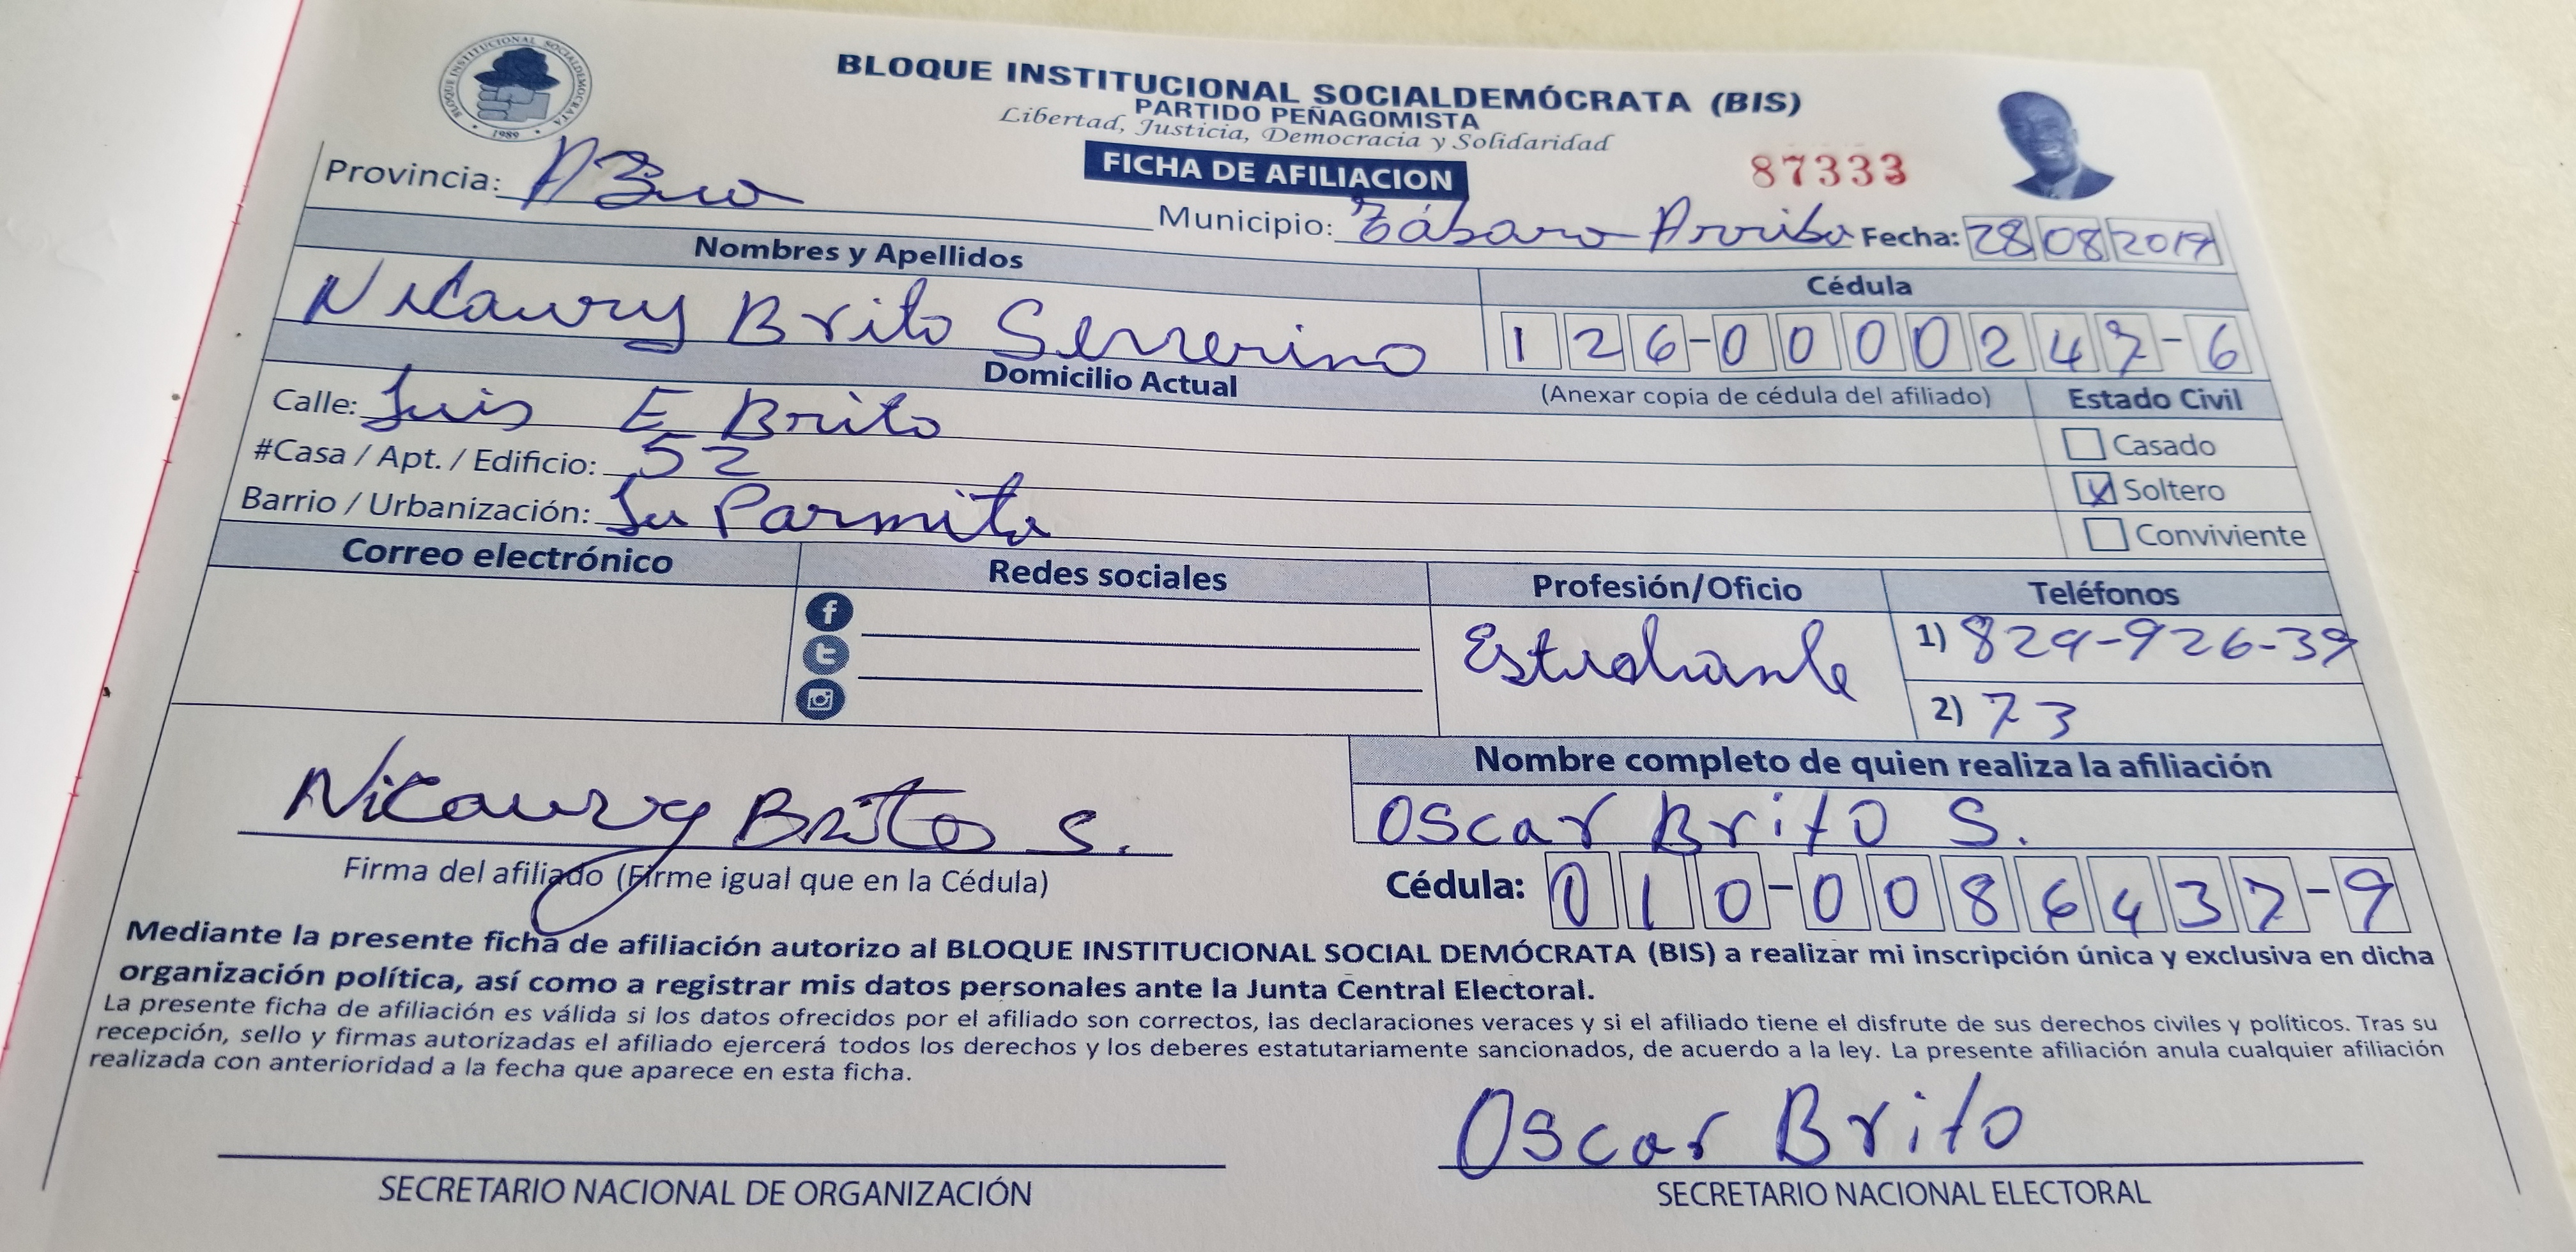 BLOQUE INSTITUCIONAL SOCIALDEMOCRATA
1989
BLOQUE INSTITUCIONAL SOCIALDEMÓCRATA (BIS)
PARTIDO PEÑAGOMISTA
Libertad, Justicia, Democracia y Solidaridad
FICHA DE AFILIACION
87333
Provincia: Municipio: Tábara Arriba Fecha: 28 08 2019
Nombres y Apellidos Cédula
Nicaury Brito Serrerino 126-0000247-6
Domicilio Actual (Anexar copia de cédula del afiliado) Estado Civil
Calle: Luis E Brito
Casado
#Casa / Apt. / Edificio: 52
X Soltero
Barrio / Urbanización: La Parmita
Conviviente
Correo electrónico Redes sociales Profesión/Oficio Teléfonos
Estudiante 1) 829-926-39
2) 73
Nombre completo de quien realiza la afiliación
Nicaury Brito S. Oscar Brito S.
Firma del afiliado (Firme igual que en la Cédula) Cédula: 010-0086437-9
Mediante la presente ficha de afiliación autorizo al BLOQUE INSTITUCIONAL SOCIAL DEMÓCRATA (BIS) a realizar mi inscripción única y exclusiva en dicha
organización política, así como a registrar mis datos personales ante la Junta Central Electoral.
La presente ficha de afiliación es válida si los datos ofrecidos por el afiliado son correctos, las declaraciones veraces y si el afiliado tiene el disfrute de sus derechos civiles y políticos. Tras su
recepción, sello y firmas autorizadas el afiliado ejercerá todos los derechos y los deberes estatutariamente sancionados, de acuerdo a la ley. La presente afiliación anula cualquier afiliación
realizada con anterioridad a la fecha que aparece en esta ficha.
Oscar Brito
SECRETARIO NACIONAL DE ORGANIZACIÓN SECRETARIO NACIONAL ELECTORAL